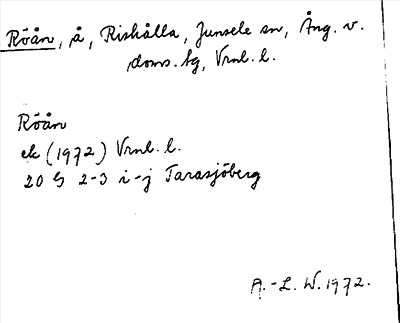 Röån, å, Rishålla, Junsele sn, Ång. v.
doms. tg, Vrnl. l.
Röån
ek (1972) Vrnl. l.
20 G 2-3 i-j Tarasjöberg
A.-L. W. 1972.